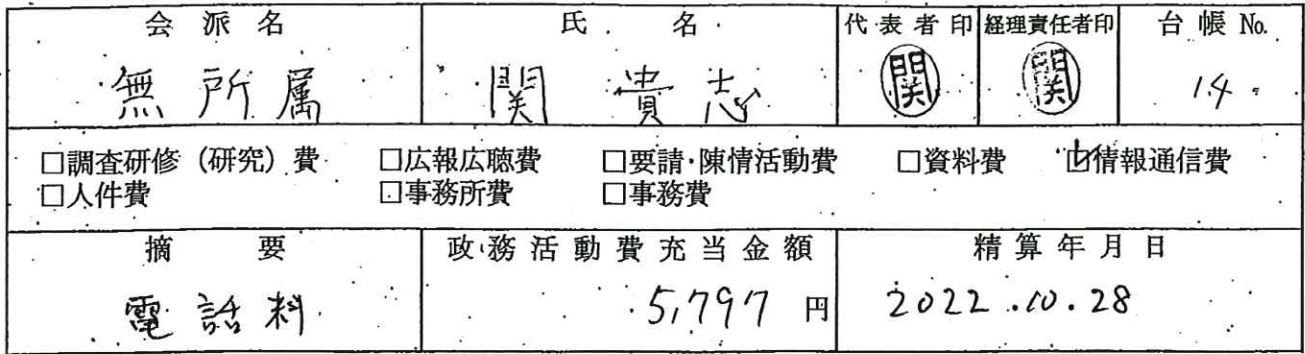 会派名 氏名 代表者印 経理責任者印 台帳No.
無所属 関貴志 関 関 14
□調査研修（研究）費 □広報広聴費 □要請・陳情活動費 □資料費 ☑情報通信費
□人件費 □事務所費 □事務費
摘要 政務活動費充当金額 精算年月日
電話料 5,797円 2022.10.28